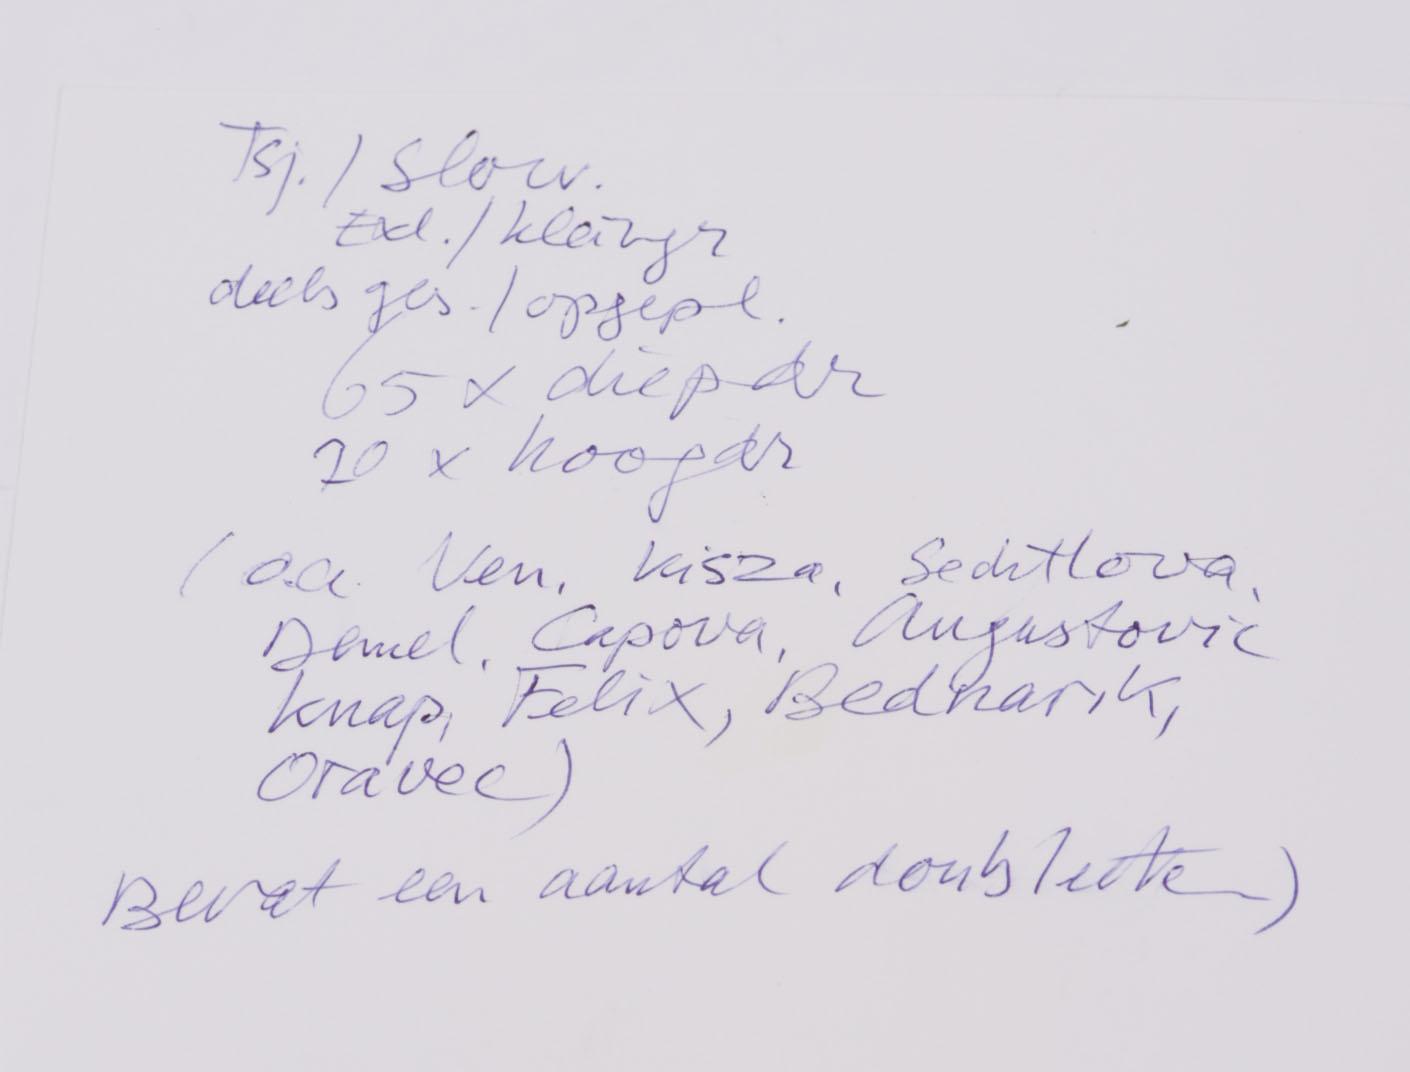 Tsj. / Slow.
Exl. / kläingr
deels ges. / opgepl.
65 x diepdr
20 x hoogdr
( o.a. Ven, Kisza, Sechtlova,
Demel, Capova, Augustovic
Knap, Felix, Bednarik,
Oravec)
Bevat een aantal doubletten)